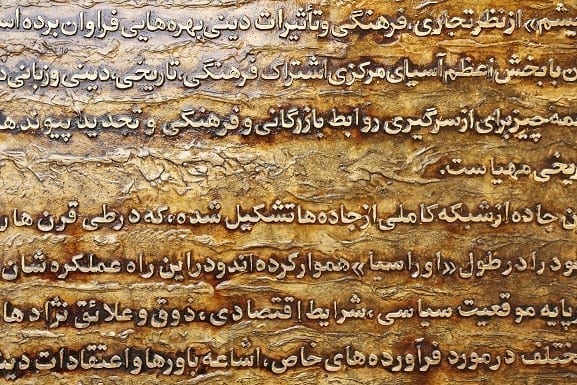 یشم» از نظر تجاری، فرهنگی و تأثیرات دینی بهره‌هایی فراوان برده اس
ن با بخش اعظم آسیای مرکزی اشتراک فرهنگی، تاریخی، دینی و زبانی د
مه چیز برای از سرگیری روابط بازرگانی و فرهنگی و تجدید پیوندها
ریخی مهیاست.
ن جاده از شبکه کاملی از جاده‌ها تشکیل شده، که در طی قرن‌ها ر
ود را در طول «اوراسیا» هموار کرده اند و در این راه عملکردشان
پایه موقعیت سیاسی، شرایط اقتصادی، ذوق و علائق نژادها
ختلف در مورد فرآورده‌های خاص، اشاعه باورها و اعتقادات دین